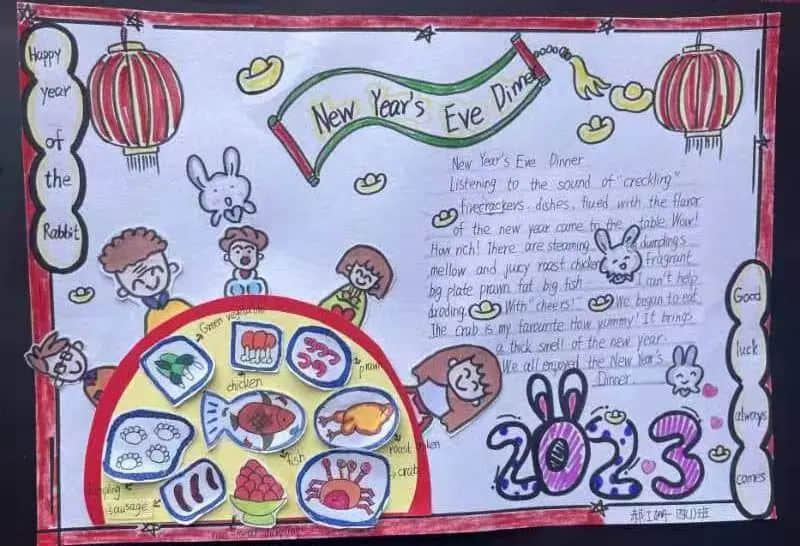 Happy
year
of
the
Rabbit
New Year's Eve Dinne
New Year's Eve Dinner
Listening to the sound of "creckling"
firecrackers. dishes, fiued with the flavor
of the new year came to the table Wow!
How rich! There are steaming dumplings
mellow and juicy roast chicken fragrant
big plate prawn fat big fish I can't help
droding. With "cheers!" We began to eat
The crab is my favourite How yummy! It brings
a thick smell of the new year.
We all enjoyed the New Year's
Dinner.
Good
luck
always
comes
Green
chicken
prawn
fish
roast
crab
sausage
2023